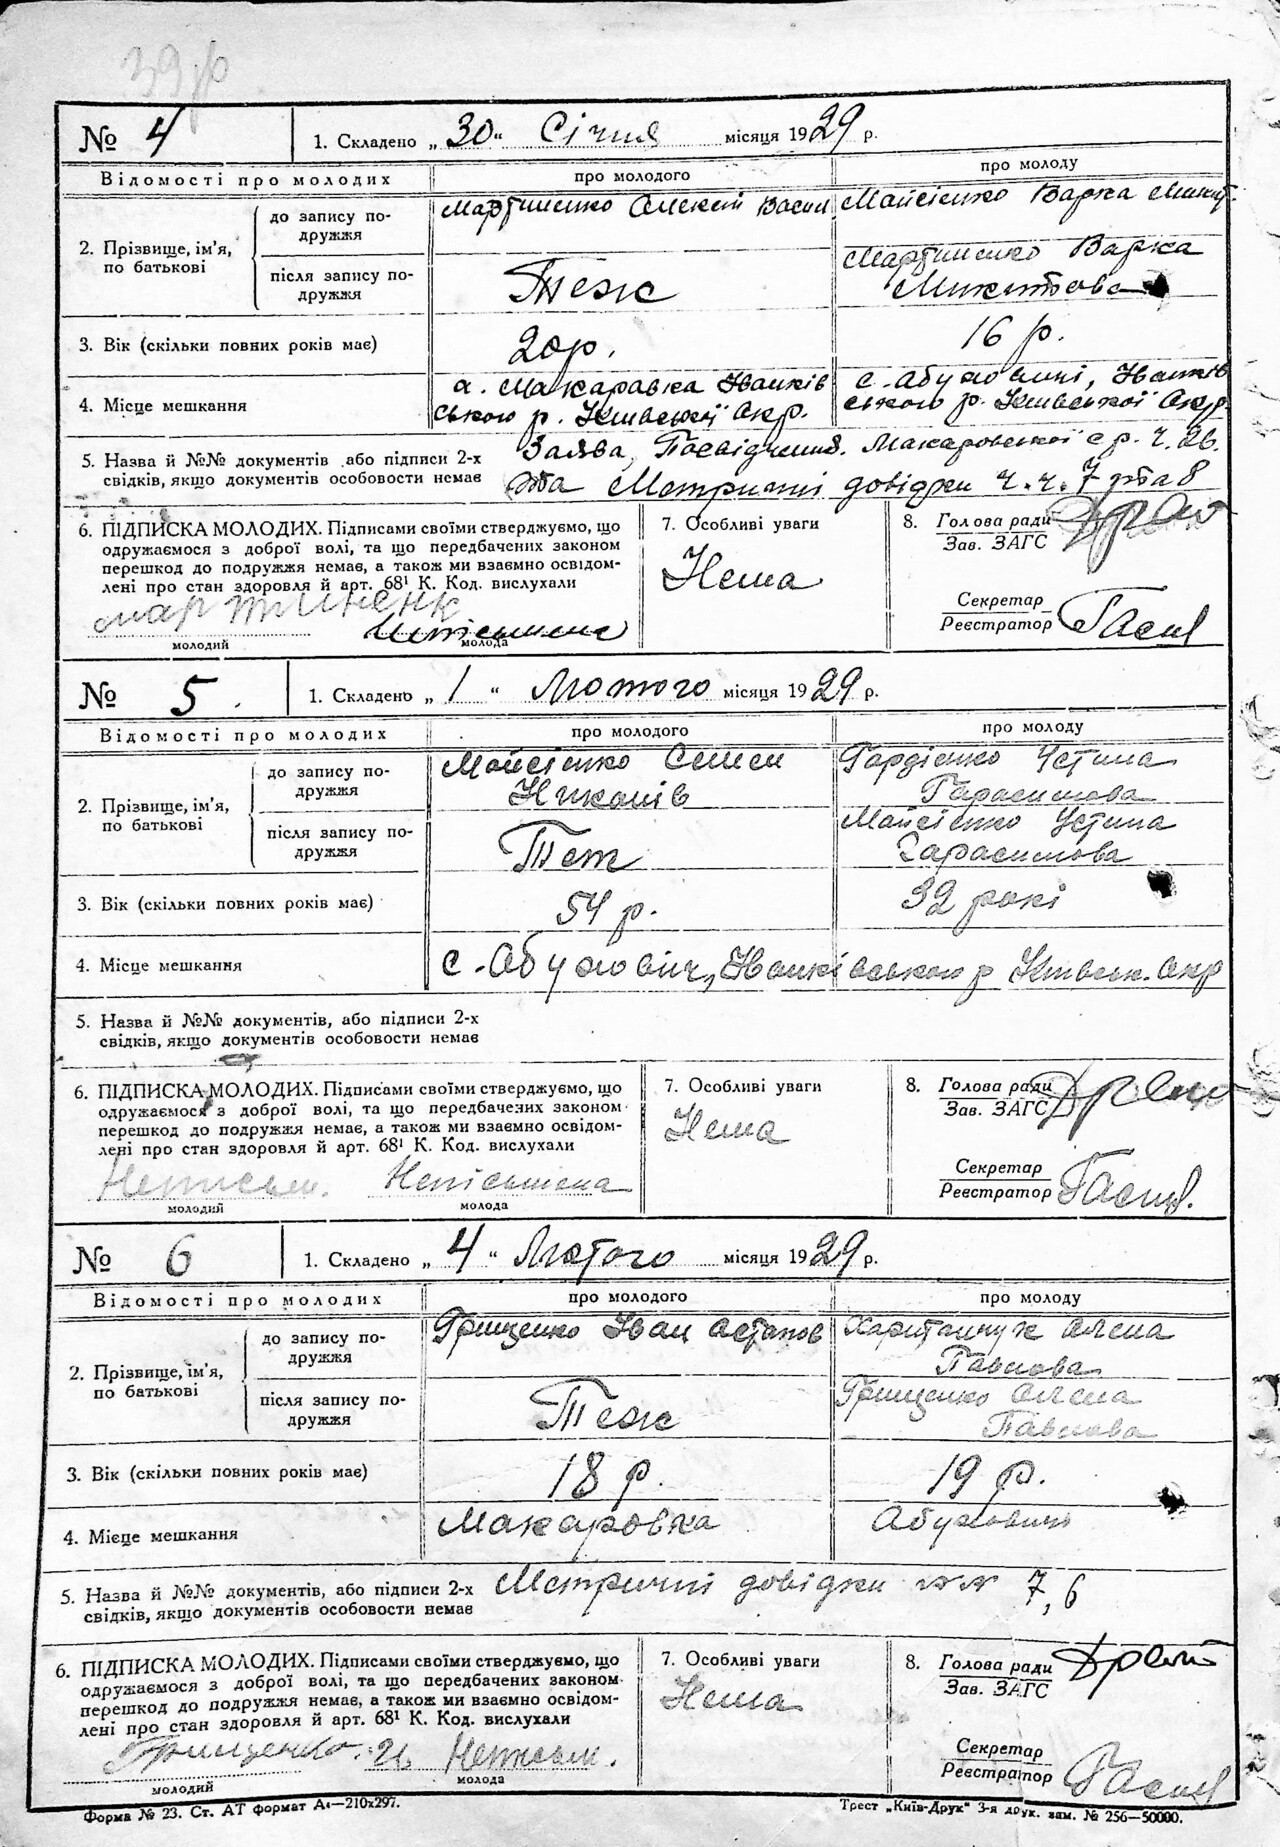 39
№ 4 1. Складено „30“ Січня місяця 1929 р.
Відомості про молодих про молодого про молоду
2. Прізвище, ім'я, по батькові
до запису по-
дружжя
Мартиненко Олексій Васил. Майсієнко Варка Микит.
після запису по-
дружжя
Теж
Мартиненко Варка
Микитова
3. Вік (скільки повних років має) 20 р. 16 р.
4. Місце мешкання
с. Макаравка Іванків
ського р. Київської Окр.
с. Абуховичі, Іванків
ського р. Київської Окр.
5. Назва й №№ документів або підписи 2-х
свідків, якщо документів особовости немає
Заява, Посвідчення Макаровської с р. ч. 26.
та Метричні довідки ч. ч. 7 та 8
6. ПІДПИСКА МОЛОДИХ. Підписами своїми стверджуємо, що
одружаємося з доброї волі, та що передбачених законом
перешкод до подружжя немає, а також ми взаємно освідом-
лені про стан здоровля й арт. 68¹ К. Код. вислухали
мартиненк
молодий молода
7. Особливі уваги
Нема
8. Голова ради
Зав. ЗАГС
Секретар
Реєстратор
№ 5 1. Складено „1“ Лютого місяця 1929 р.
Відомості про молодих про молодого про молоду
2. Прізвище, ім'я, по батькові
до запису по-
дружжя
Майсієнко Семен
Никонів
Гордієнко Устина
Гарасимова
після запису по-
дружжя
Теж
Майсієнко Устина
Гарасимова
3. Вік (скільки повних років має) 54 р. 32 рокі
4. Місце мешкання с. Абухович, Іванківського р Київськ. Окр
5. Назва й №№ документів, або підписи 2-х
свідків, якщо документів особовости немає
6. ПІДПИСКА МОЛОДИХ. Підписами своїми стверджуємо, що
одружаємося з доброї волі, та що передбачених законом
перешкод до подружжя немає, а також ми взаємно освідом-
лені про стан здоровля й арт. 68¹ К. Код. вислухали
Неписьм. Неписьмена
молодий молода
7. Особливі уваги
Нема
8. Голова ради
Зав. ЗАГС
Секретар
Реєстратор
№ 6 1. Складено „4“ Лютого місяця 1929 р.
Відомості про молодих про молодого про молоду
2. Прізвище, ім'я, по батькові
до запису по-
дружжя
Грищенко Іван Остапов
Харитончук Олена
Павлова
після запису по-
дружжя
Теж
Грищенко Олена
Павлова
3. Вік (скільки повних років має) 18 р. 19 р.
4. Місце мешкання Макаровка Абуховичі
5. Назва й №№ документів, або підписи 2-х
свідків, якщо документів особовости немає
Метричні довідки №№ 7, 6
6. ПІДПИСКА МОЛОДИХ. Підписами своїми стверджуємо, що
одружаємося з доброї волі, та що передбачених законом
перешкод до подружжя немає, а також ми взаємно освідом-
лені про стан здоровля й арт. 68¹ К. Код. вислухали
Грищенко. И Неписьм.
молодий молода
7. Особливі уваги
Нема
8. Голова ради
Зав. ЗАГС
Секретар
Реєстратор
Форма № 23. Ст. АТ формат А₄—210x297.
Трест „Київ-Друк“ 3-я друк. зам. № 256—50000.